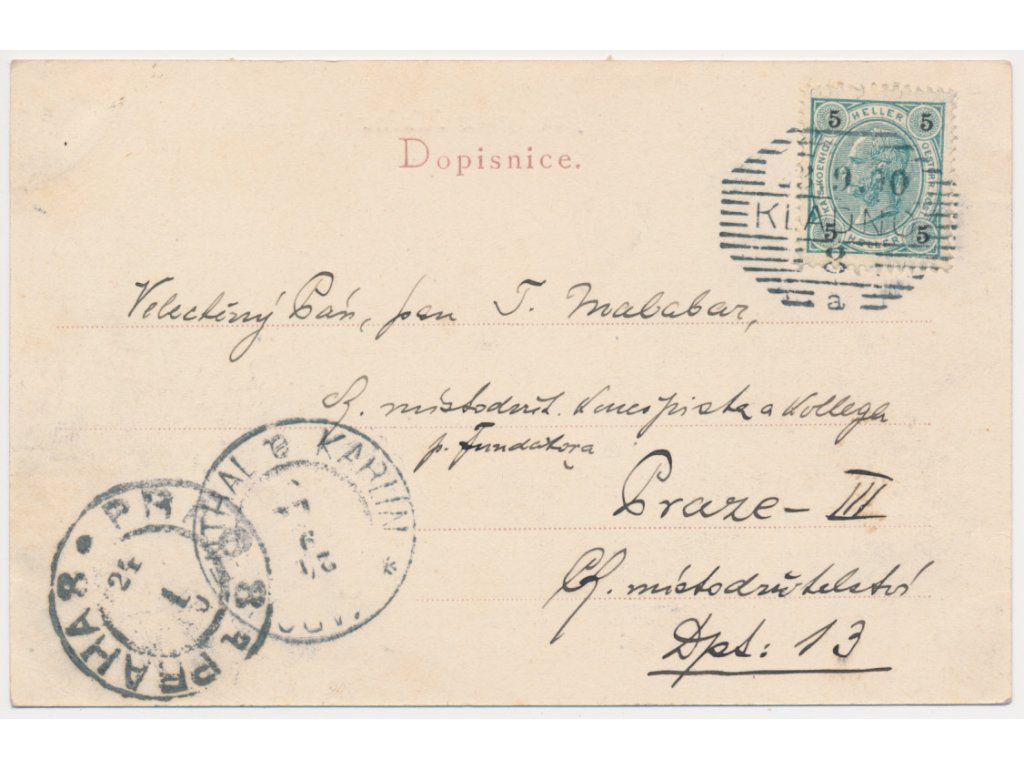 Dopisnice.
5 HELLER 5
9.00
KLADNO
5 HELLER 5
8
a
Velectěný Pán, pan T. Malabar,
C. K. místodrž. koncipista a kollega
p. Fundatora
Praze – III
C. K. místodržitelství
Dpt: 13
KARLIN *
THAL
PRAG 8
24
PRAHA 8